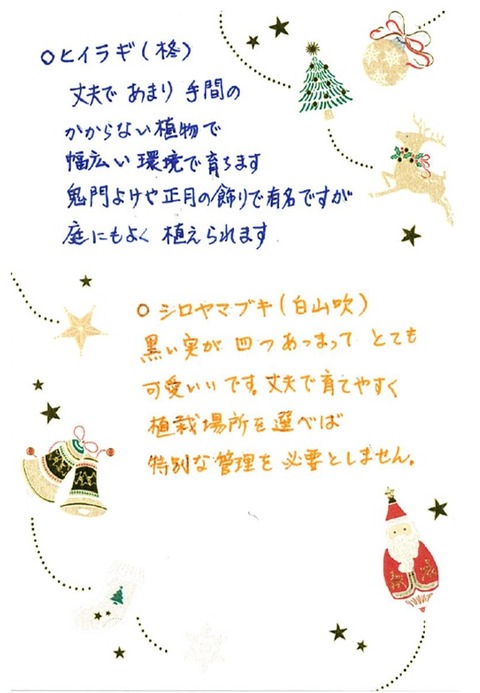 ○ヒイラギ(柊)
丈夫で あまり 手間の
かからない 植物で
幅広い 環境で育ちます
鬼門よけや正月の飾りで有名ですが
庭にもよく 植えられます
○シロヤマブキ(白山吹)
黒い実が 四つあつまって とても
可愛いいです。丈夫で育てやすく
植栽場所を選べば
特別な管理を必要としません。